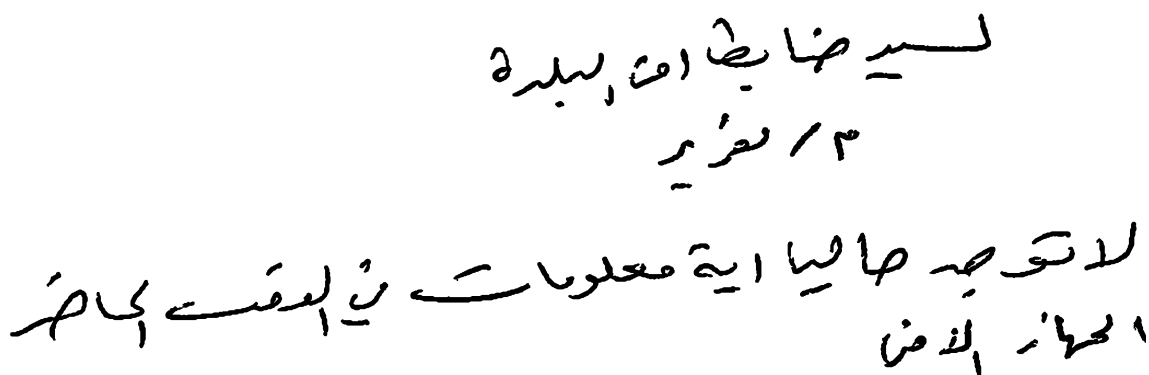 لسيد ضابط امن البلدة
م / تقرير
لا توجد حاليا اية معلومات في الوقت الحاضر
الجهاز الامني